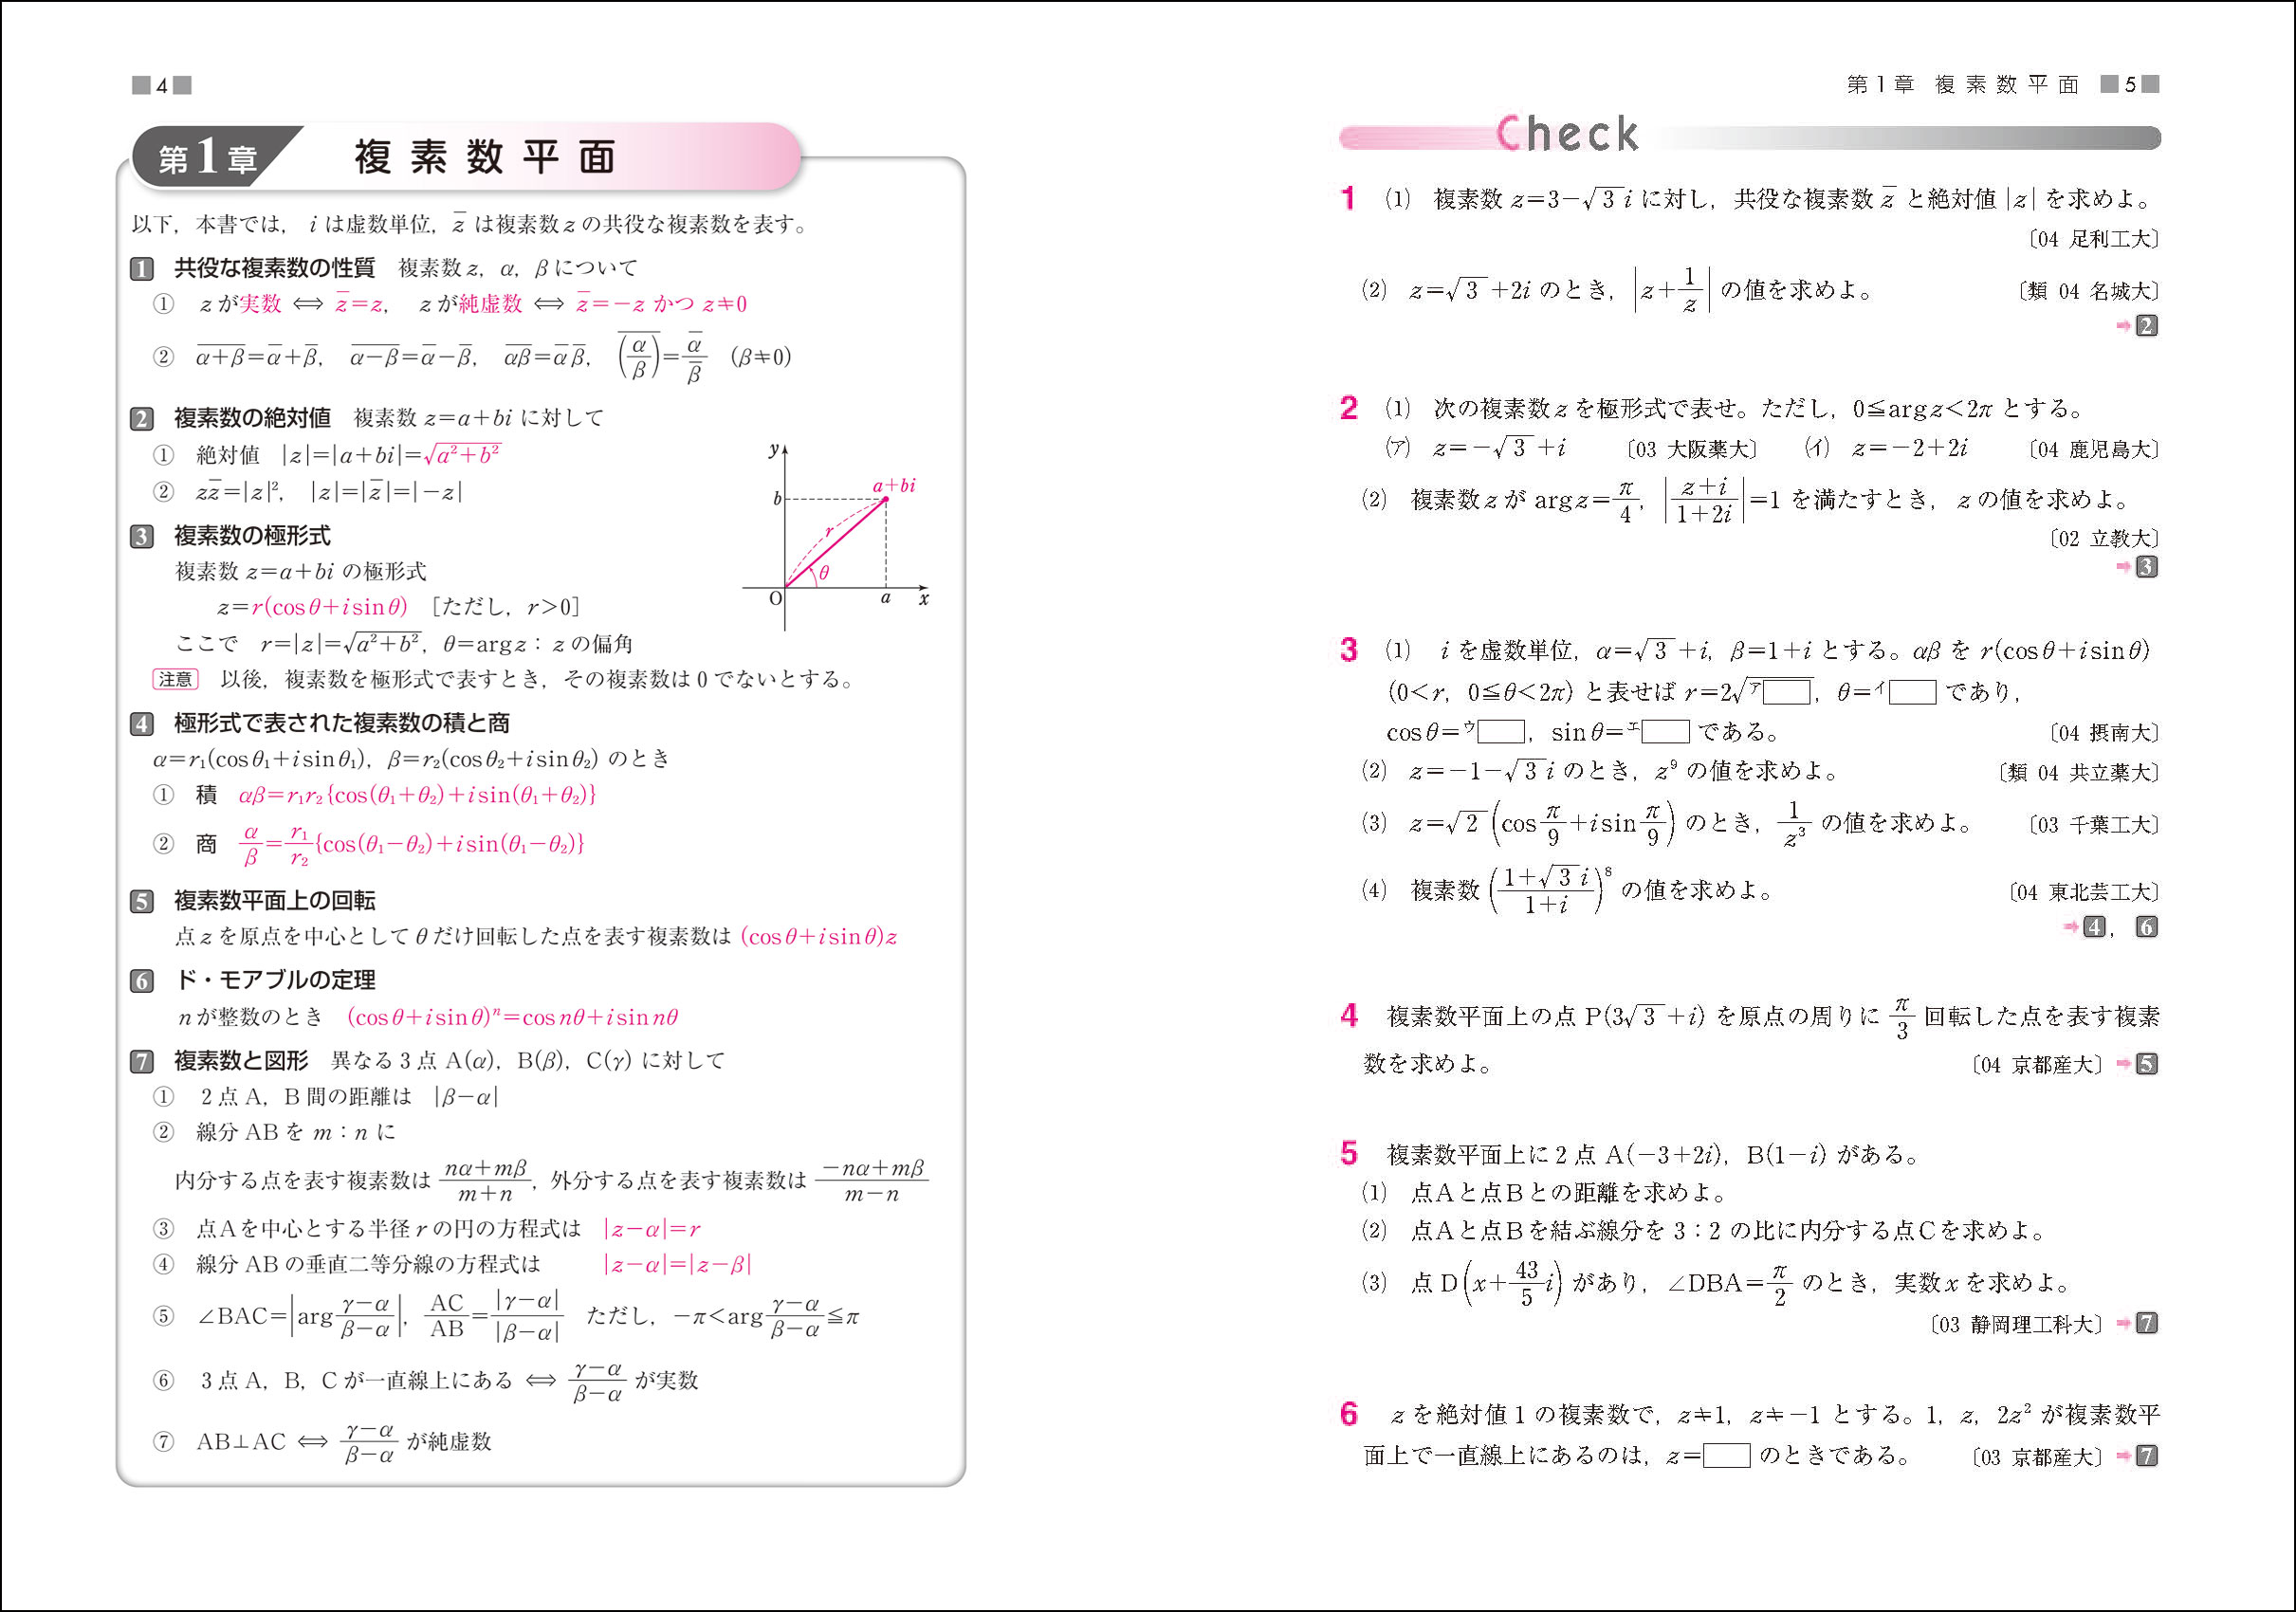 4
第1章 複素数平面
以下，本書では， i は虚数単位，z̄ は複素数 z の共役な複素数を表す。
1 共役な複素数の性質 複素数 z，α，β について
① z が実数 ⟺ z̄=z， z が純虚数 ⟺ z̄=−z かつ z≠0
② \overline{α+β}=\overline{α}+\overline{β}， \overline{α−β}=\overline{α}−\overline{β}， \overline{αβ}=\overline{α}\overline{β}， \overline{(α/β)}=\overline{α}/\overline{β} (β≠0)
2 複素数の絶対値 複素数 z=a+bi に対して
① 絶対値 |z|=|a+bi|=√(a²+b²)
② zz̄=|z|²， |z|=|z̄|=|−z|
y
b
a+bi
r
θ
O a x
3 複素数の極形式
複素数 z=a+bi の極形式
z=r(cosθ+isinθ) [ただし，r>0]
ここで r=|z|=√(a²+b²)，θ=argz：z の偏角
注意 以後，複素数を極形式で表すとき，その複素数は 0 でないとする。
4 極形式で表された複素数の積と商
α=r₁(cosθ₁+isinθ₁)，β=r₂(cosθ₂+isinθ₂) のとき
① 積 αβ=r₁r₂{cos(θ₁+θ₂)+isin(θ₁+θ₂)}
② 商 α/β=r₁/r₂{cos(θ₁−θ₂)+isin(θ₁−θ₂)}
5 複素数平面上の回転
点 z を原点を中心として θ だけ回転した点を表す複素数は (cosθ+isinθ)z
6 ド・モアブルの定理
n が整数のとき (cosθ+isinθ)ⁿ=cosnθ+isinnθ
7 複素数と図形 異なる 3 点 A(α)，B(β)，C(γ) に対して
① 2 点 A，B 間の距離は |β−α|
② 線分 AB を m：n に
内分する点を表す複素数は (nα+mβ)/(m+n)，外分する点を表す複素数は (−nα+mβ)/(m−n)
③ 点Aを中心とする半径 r の円の方程式は |z−α|=r
④ 線分 AB の垂直二等分線の方程式は |z−α|=|z−β|
⑤ ∠BAC=|arg (γ−α)/(β−α)|，AC/AB=|γ−α|/|β−α| ただし，−π<arg (γ−α)/(β−α)≦π
⑥ 3 点 A，B，C が一直線上にある ⟺ (γ−α)/(β−α) が実数
⑦ AB⊥AC ⟺ (γ−α)/(β−α) が純虚数
第1章 複素数平面 5
Check
1 (1) 複素数 z=3−√3 i に対し，共役な複素数 z̄ と絶対値 |z| を求めよ。
〔04 足利工大〕
(2) z=√3+2i のとき，|z+1/z| の値を求めよ。 〔類 04 名城大〕
➡2
2 (1) 次の複素数 z を極形式で表せ。ただし，0≦argz<2π とする。
(ア) z=−√3+i 〔03 大阪薬大〕 (イ) z=−2+2i 〔04 鹿児島大〕
(2) 複素数 z が argz=π/4，|(z+i)/(1+2i)|=1 を満たすとき，z の値を求めよ。
〔02 立教大〕
➡3
3 (1) i を虚数単位，α=√3+i，β=1+i とする。αβ を r(cosθ+isinθ)
(0<r，0≦θ<2π) と表せば r=2√ア□，θ=イ□ であり，
cosθ=ウ□，sinθ=エ□ である。 〔04 摂南大〕
(2) z=−1−√3 i のとき，z⁹ の値を求めよ。 〔類 04 共立薬大〕
(3) z=√2(cos π/9+isin π/9) のとき，1/z³ の値を求めよ。 〔03 千葉工大〕
(4) 複素数 ((1+√3 i)/(1+i))⁸ の値を求めよ。 〔04 東北芸工大〕
➡4，6
4 複素数平面上の点 P(3√3+i) を原点の周りに π/3 回転した点を表す複素
数を求めよ。 〔04 京都産大〕➡5
5 複素数平面上に 2 点 A(−3+2i)，B(1−i) がある。
(1) 点Aと点Bとの距離を求めよ。
(2) 点Aと点Bを結ぶ線分を 3：2 の比に内分する点Cを求めよ。
(3) 点 D(x+43/5 i) があり，∠DBA=π/2 のとき，実数 x を求めよ。
〔03 静岡理工科大〕➡7
6 z を絶対値 1 の複素数で，z≠1，z≠−1 とする。1，z，2z² が複素数平
面上で一直線上にあるのは，z=□ のときである。 〔03 京都産大〕➡7